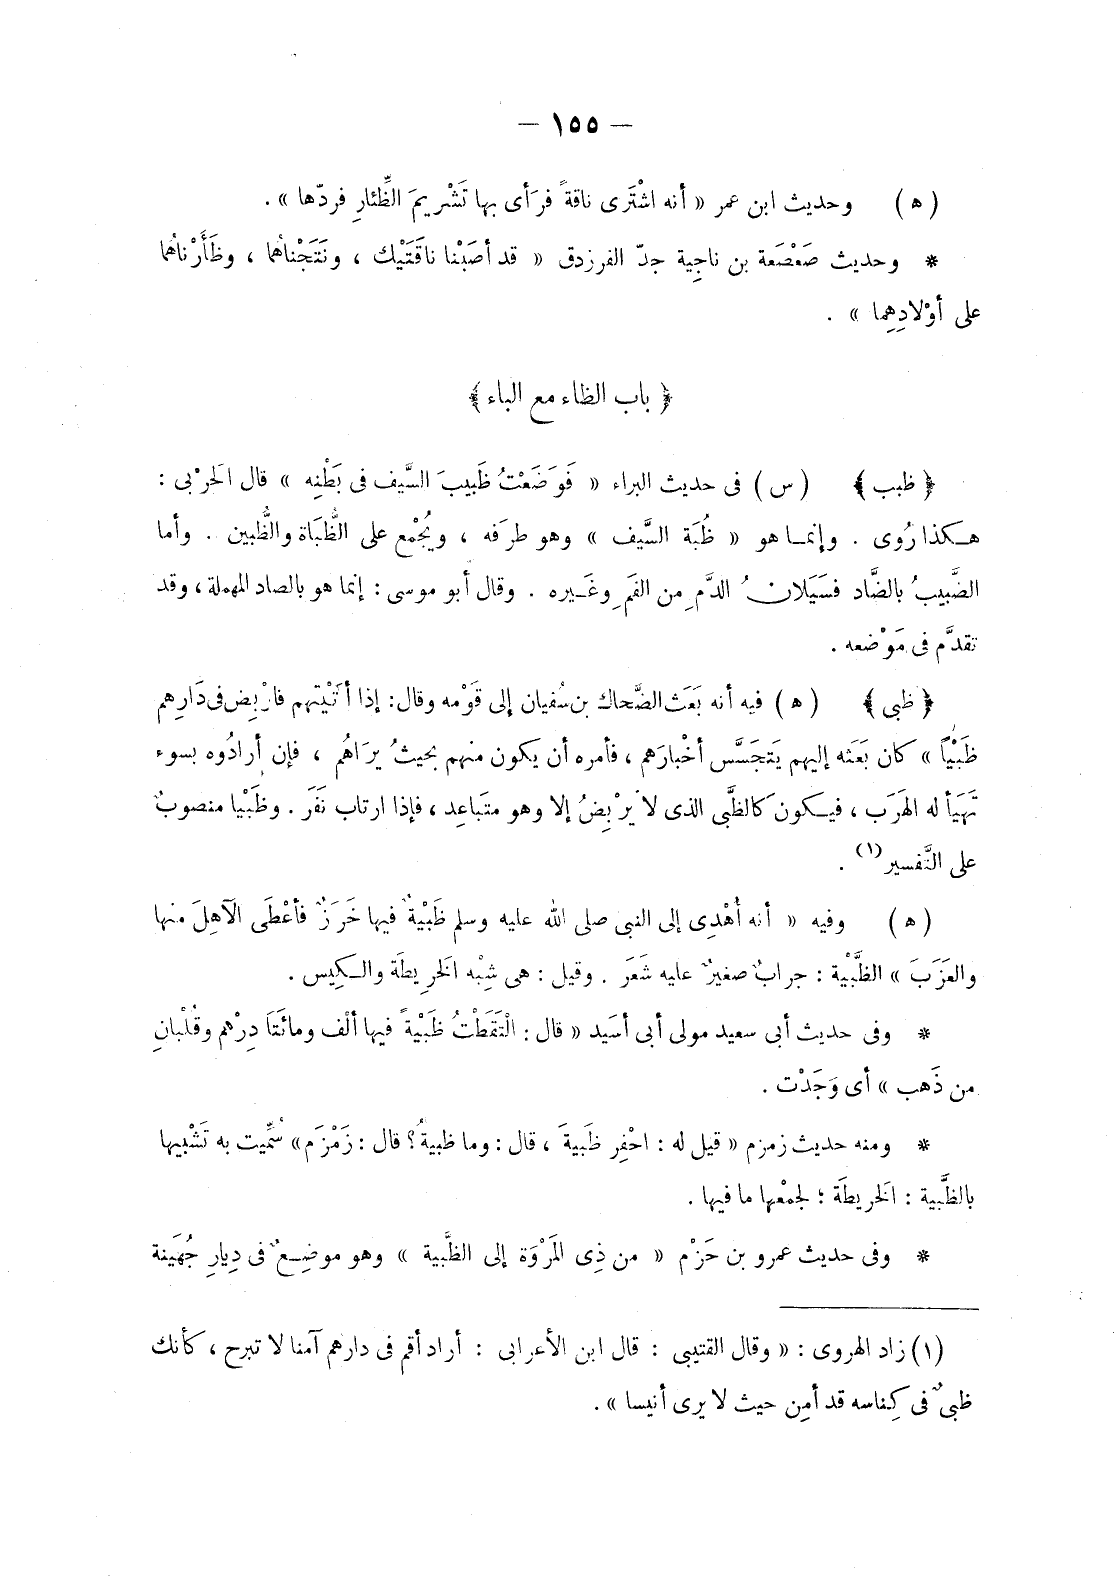 — ١٥٥ —
( ﻫ ) وحديث ابن عمر « أنه اشْتَرى ناقةً فرَأى بها تَشْرِيمَ الظِّئارِ فردّها » .
* وحديث صَعْصَعة بن ناجِية جدّ الفرزدق « قد أصَبْنا ناقَتَيْك ، ونَتَجْناهُما ، وظَأَرْناهُما
على أوْلادِهِما » .
﴿ باب الظاء مع الباء ﴾
﴿ ظبب ﴾ ( س ) فى حديث البراء « فَوَضَعْتُ ظَبِيبَ السَّيف فى بَطْنِه » قال الحَرْبى :
هكذا رُوى . وإنما هو « ظُبَة السَّيف » وهو طرفه ، ويُجْمع على الظُّبَاة والظُّبين . وأما
الضَّبيبُ بالضَّاد فسَيَلانُ الدَّمِ من الفَمِ وغَيره . وقال أبو موسى : إنما هو بالصاد المهملة ، وقد
تقدَّم فى مَوْضعه .
﴿ ظبى ﴾ ( ﻫ ) فيه أنه بَعَث الضَّحاك بن سُفيان إلى قَوْمه وقال : إذا أتَيْتهم فارْبِض فى دَارِهم
ظَبْياً » كان بَعَثه إليهم يَتجَسَّس أخْبارَهم ، فأمره أن يكون منهم بحيثُ يرَاهُم ، فإن أرادُوه بسوء
تَهَيَأ له الهَرَب ، فيكون كَالظَّبى الذى لا يَرْبِضُ إلا وهو متَباعِد ، فإذا ارتاب نَفَر . وظَبْيا منصوبٌ
على التَّفسير (١) .
( ﻫ ) وفيه « أنه أُهْدِى إلى النبى صلى الله عليه وسلم ظَبْيةٌ فيها خَرَزٌ فأعْطَى الآهِلَ منها
والعَزَبَ » الظَّبْية : جرابٌ صغيرٌ عليه شَعَر . وقيل : هى شِبْه الخَرِيطَة والكِيس .
* وفى حديث أبى سعيد مولى أبى أسَيد « قال : الْتَقَطْتُ ظَبْيةً فيها ألْف ومائَتَا دِرْهم وقُلْبانِ
من ذَهب » أى وَجَدْت .
* ومنه حديث زمزم « قيل له : احْفِر ظَبيةَ ، قال : وما ظبيةُ ؟ قال : زَمْزَم » سُمِّيت به تَشْبيها
بالظَّبية : الخَريطَة ؛ لجمْعها ما فيها .
* وفى حديث عمرو بن حَزْم « من ذِى المَرْوَة إلى الظَّبية » وهو موضِعٌ فى دِيارِ جُهَينة
(١) زاد الهروى : « وقال القتيبى : قال ابن الأعرابى : أراد أقم فى دارهم آمنا لا تبرح ، كأنك
ظبىٌ فى كِناسه قد أمِن حيث لا يرى أنيسا » .